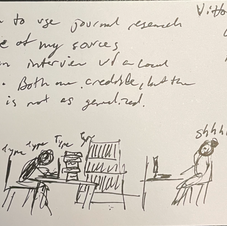 to use journal research
of my sources
interview
Both are credible, but the
is not as generalized.
Type Type Type Type
shhh